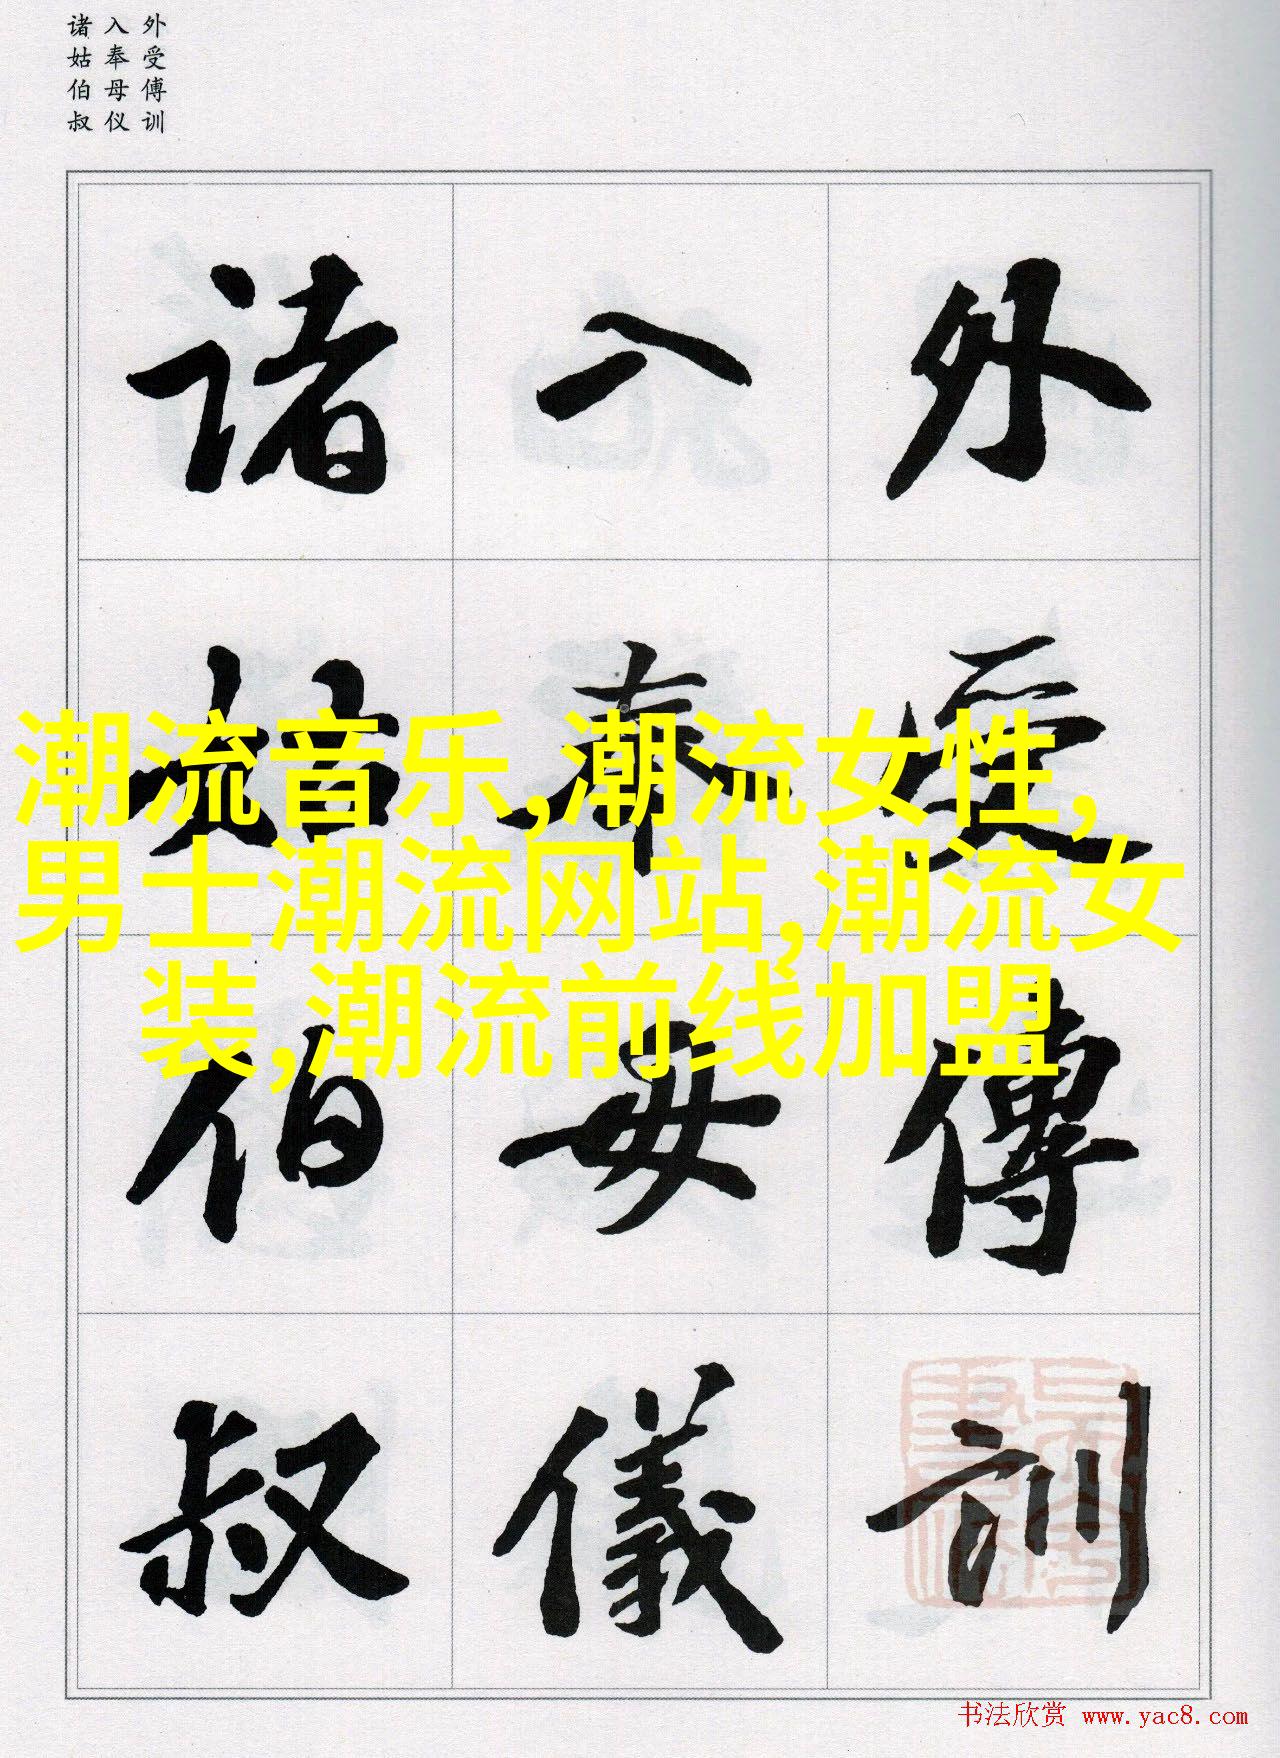 外受傅训
入奉母仪
诸姑伯叔
外受傅訓
入奉母儀
诸姑伯叔
潮流音乐,潮流女性,
男士潮流网站,潮流女
装,潮流前线加盟
书法欣赏 www.yac8.com